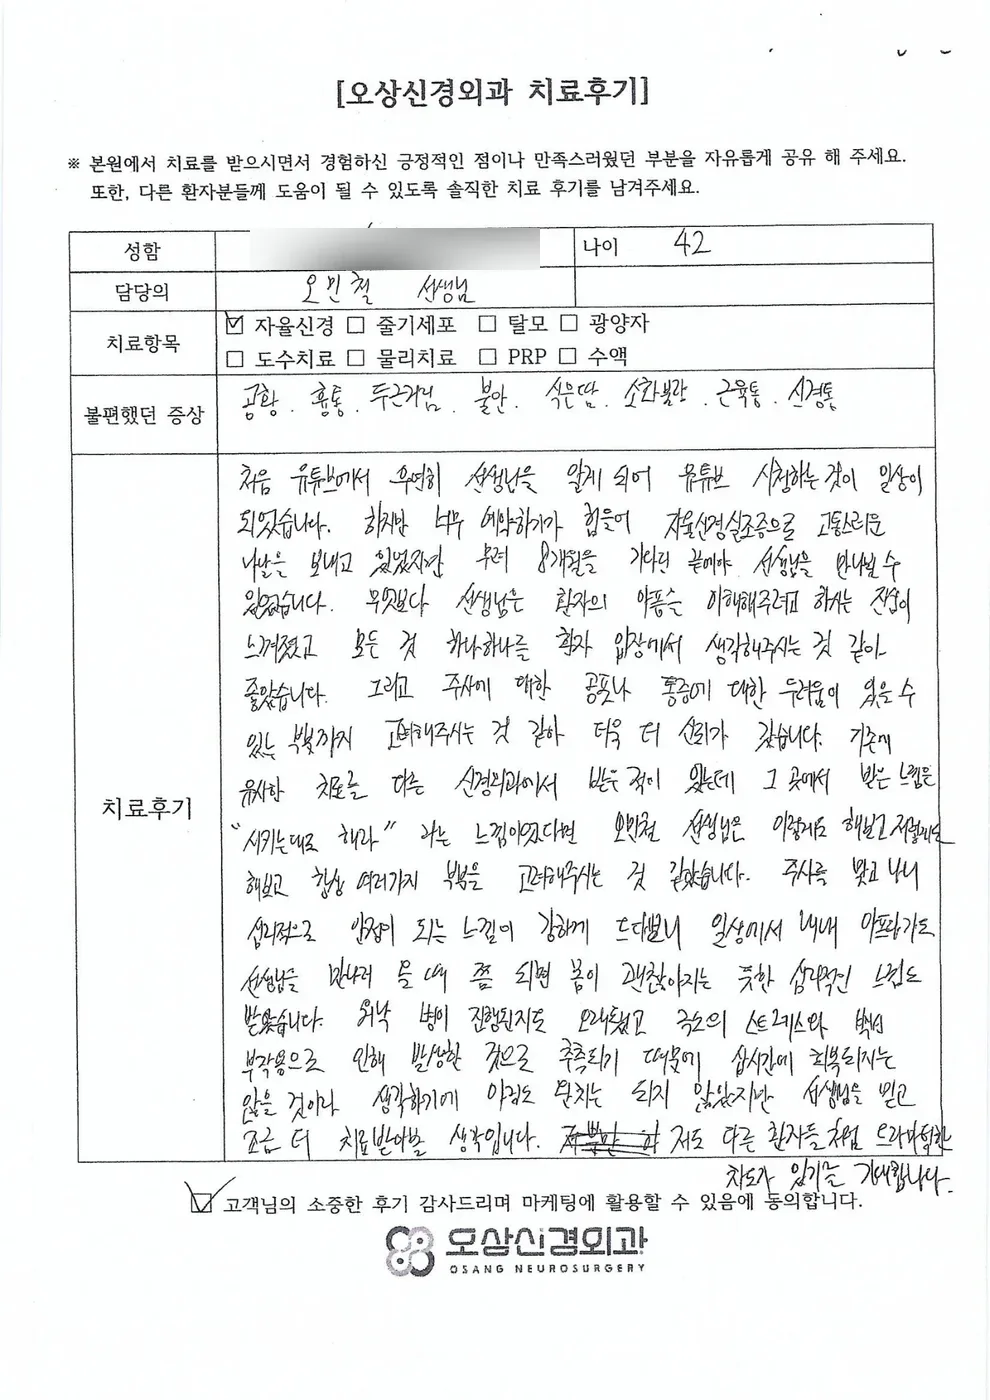 [오상신경외과 치료후기]
※ 본원에서 치료를 받으시면서 경험하신 긍정적인 점이나 만족스러웠던 부분을 자유롭게 공유 해 주세요.
또한, 다른 환자분들께 도움이 될 수 있도록 솔직한 치료 후기를 남겨주세요.
성함
나이 42
담당의 오민철 선생님
치료항목
☑ 자율신경 □ 줄기세포 □ 탈모 □ 광양자
□ 도수치료 □ 물리치료 □ PRP □ 수액
불편했던 증상
공황. 흉통. 두근거림. 불안. 식은땀. 소화불량. 근육통. 신경통
치료후기
처음 유튜브에서 우연히 선생님을 알게 되어 유튜브 시청하는 것이 일상이
되었습니다. 하지만 너무 예약하기가 힘들어 자율신경실조증으로 고통스러운
나날을 보내고 있었지만 무려 8개월을 기다린 끝에야 선생님을 만나뵐 수
있었습니다. 무엇보다 선생님은 환자의 아픔을 이해해주려고 하시는 진심이
느껴졌고 모든 것 하나하나를 환자 입장에서 생각해주시는 것 같아
좋았습니다. 그리고 주사에 대한 공포나 통증에 대한 두려움이 있을 수
있는 부분까지 고려해주시는 것 같아 더욱 더 신뢰가 갔습니다. 기존에
유사한 치료를 다른 신경외과에서 받은 적이 있는데 그 곳에서 받은 느낌은
"시키는대로 해라" 라는 느낌이었다면 오민철 선생님은 이렇게도 해보고 저렇게도
해보고 항상 여러가지 부분을 고려해주시는 것 같았습니다. 주사를 맞고 나니
심리적으로 안정이 되는 느낌이 강하게 드다보니 일상에서 내내 아프다가도
선생님을 만나러 올 때 쯤 되면 몸이 괜찮아지는 듯한 심리적인 느낌도
받았습니다. 워낙 병이 진행된지도 오래됐고 극도의 스트레스와 백신
부작용으로 인해 발생한 것으로 추측되기 때문에 삽시간에 회복되지는
않을 것이라 생각하기에 아직도 완치는 되지 않았지만 선생님을 믿고
조금 더 치료받아볼 생각입니다. 저도 다른 환자들처럼 드라마틱한
차도가 있기를 기대합니다.
☑ 고객님의 소중한 후기 감사드리며 마케팅에 활용할 수 있음에 동의합니다.
오상신경외과
OSANG NEUROSURGERY